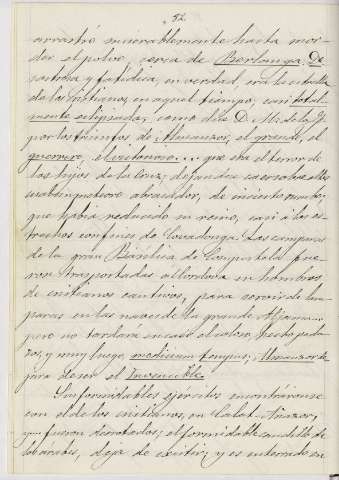 52
arrastró miserablemente hasta mor-
der el polvo, cerca de Berlanga. De
sastrosa y fatídica, en verdad, era la estrella
de los cristianos, en aquel tiempo, casi total-
mente eclipsada, como dice D. M. de la
por los triunfos de Almanzor, el grande, el
guerrero, el victorioso... que era el terror de
los hijos de la Cruz; dejándose caer sobre ellos
cual un meteoro abrasador, de incierto rumbo;
que había reducido su reino, casi a los es-
trechos confines de Covadonga. Las campanas
de la gran Basílica de Compostela fue-
ron trasportadas a Córdova en hombros
de cristianos cautivos, para servir de lám-
paras en las naves de la grande Aljama...
pero no tardará en caer el coloso, hecho peda-
zos, y muy luego, modicum tempus, Almanzor de-
jará de ser el Invencible.
Sus formidables ejércitos encontráronse
con el de los cristianos, en Calat-Añazor,
y fueron derrotados; el formidable caudillo de
los árabes, deja de existir, y es enterrado en